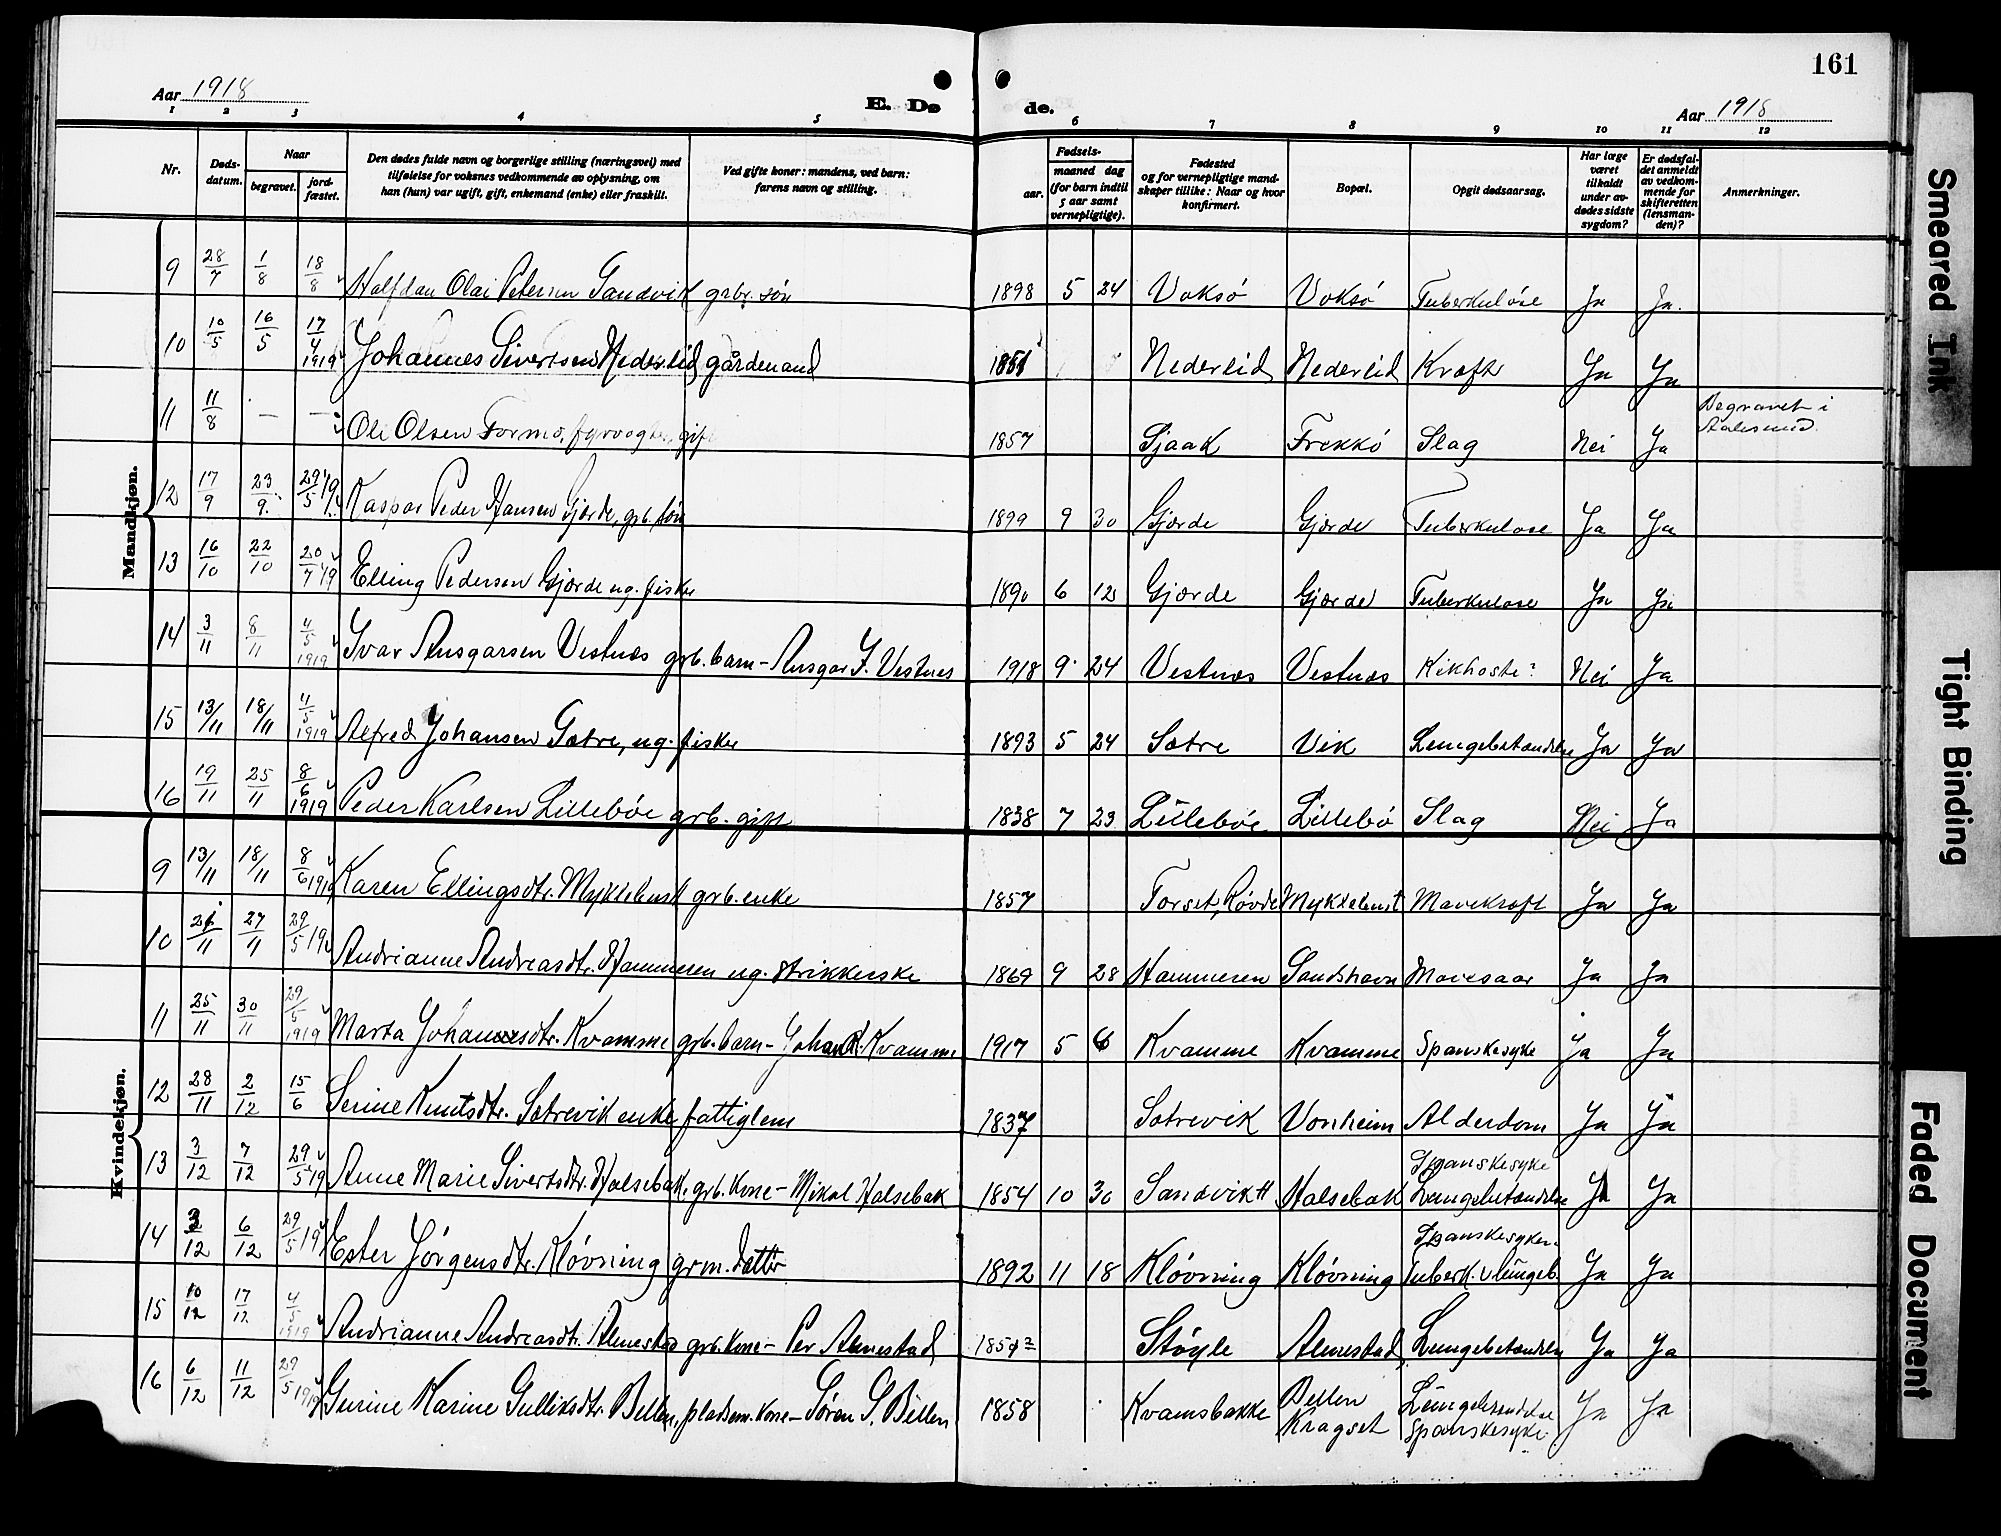 161
Aar 1918
E. Dø
de.
Aar 1918
1 2 3 4 5 6 7 8 9 10 11 12
Nr.
Døds-
datum.
Naar
begravet.
jord-
fæstet.
Den dødes fulde navn og borgerlige stilling (næringsvei) med
tilføielse for voksnes vedkommende av oplysning, om
han (hun) var ugift, gift, enkemand (enke) eller fraskilt.
Ved gifte koner: mandens, ved barn:
farens navn og stilling.
Fødsels-
aar.
maaned dag
(for barn indtil
5 aar samt
vernepligtige).
Fødested
og for vernepligtige mand-
skaper tillike: Naar og hvor
konfirmert.
Bopæl.
Opgit dødsaarsag.
Har læge
været
tilkaldt
under av-
dødes sidste
sygdom?
Er dødsfal-
det anmeldt
av vedkom-
mende for
skifteretten
(lensman-
den)?
Anmerkninger.
Mandkjøn.
9 28/7 1/8 18/8 Halfdan Olai Petersen Sandvik grbr. søn 1898 5 24 Voksø Voksø Tuberkuløse Ja Ja.
10 10/5 16/5 17/4 1919 Johannes Sivertsen Nederlid gårdmand 1851 Nederlid Nederlid Kræft Ja Ja
11 11/8 — — Ole Olsen Formo, fyrvogter, gift 1857 Sjaak Frekkø Slag Nei Ja Begravet i
Aalesund.
12 17/9 23/9. 29/5 19 Kaspar Peder Hansen Gjærde, grb. søn 1899 9 30 Gjærde Gjærde Tuberkulose Ja Ja
13 16/10 22/10 20/7 19 Elling Pedersen Gjærde ug. fisker 1890 6 12 Gjærde Gjærde Tuberkulose Ja Ja
14 3/11 8/11 4/5 1919 Ivar Ansgarsen Vestnæs grb. barn - Ansgar I. Vestnes 1918 9 24 Vestnæs Vestnæs Kikhoste? Nei Ja
15 13/11 18/11 4/5 1919 Alfred Johansen Sætre, ug. fisker 1893 5 24 Sætre Vik Lungebetændelse Ja Ja
16 19/11 25/11 8/6 1919 Peder Karlsen Lillebøe grb. gift 1838 7 23 Lillebøe Lillebø Slag Nei Ja
Kvindekjøn.
9 13/11 18/11 8/6 1919 Karen Ellingsdtr. Myklebust grb. enke 1857 Torset, Røvde Myklebust Mavekræft Ja Ja
10 21/11 27/11 29/5 19 Andrianne Andreasdtr. Hammeren ug. strikkerske 1869 9 28 Hammeren Sandshavn Mavesaar Ja Ja
11 25/11 30/11 29/5 1919 Marta Johannesdtr. Kvamme grb. barn - Johan K. Kvamme 1917 5 6 Kvamme Kvamme Spanskesyke Ja Ja
12 28/11 2/12 15/6 Serine Knutsdtr. Sætrevik enke fattiglem 1837 Sætrevik Vonheim Alderdom Ja Ja
13 3/12 7/12 29/5 19 Anne Marie Sivertsdtr. Halsebak, grb. kone - Mikal Halsebak 1854 10 30 Sandvik H Halsebak Spanskesyke
Lungebetændelse Ja Ja
14 3/12 6/12 29/5 19 Ester Jørgensdtr. Kløvning grm. datter 1892 11 18 Kløvning Kløvning Spanskesyken.
Tuberk. Lungeb. Ja Ja
15 10/12 17/12 4/5 1919 Andrianne Andreasdtr. Almestad grb. kone - Per Almestad 1854? Støyle Almestad, Lungebetændelse Ja Ja
16 6/12 11/12 29/5 1919 Gurine Karine Gulliksdtr. Bellen, pladsm. kone - Søren S. Bellen 1858 Kvamsbakke Bellen
Kragset Lungebetændelse
Spanskesyke Ja Ja
Smeared Ink
Tight Binding
Faded Document